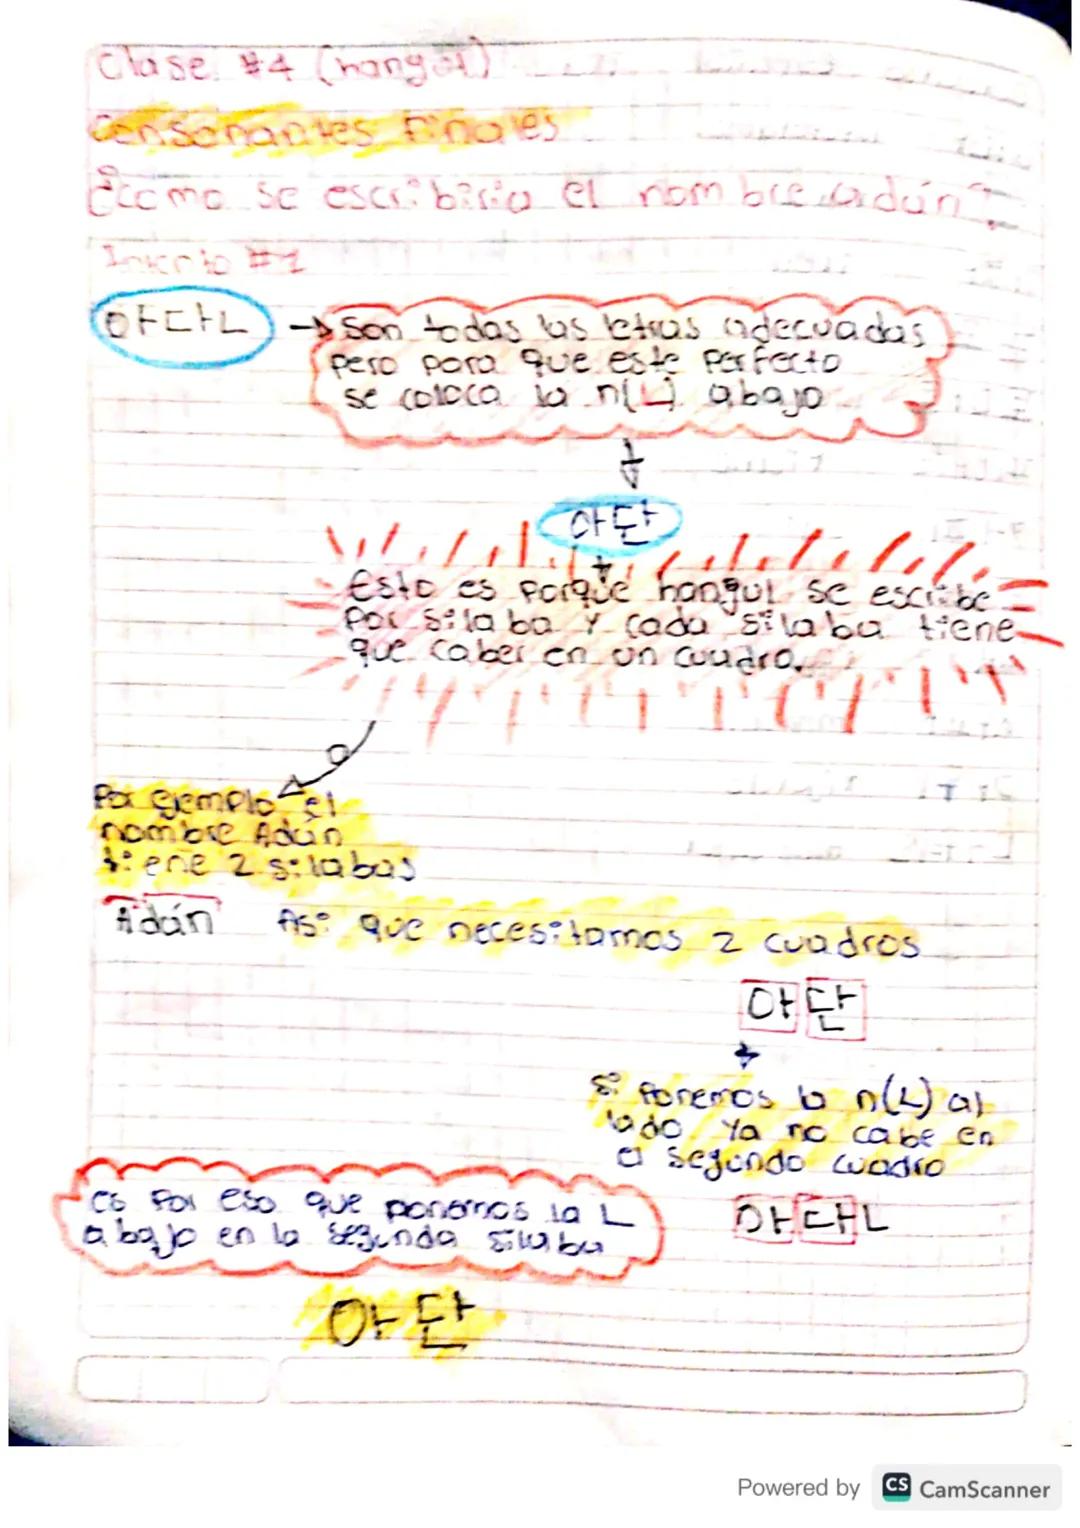 Clase #4 (hangul)
Consonantes Finales
¿Como se escribiria el nombre adán?
Intento #1
ㅇㅏㄷㅏㄴ → Son todas las letras adecuadas
pero para que este perfecto
se coloca la n(ㄴ) abajo
아단
Esto es porque hangul se escribe
por silaba y cada silaba tiene
que caber en un cuadro.
Por ejemplo el
nombre Adán
tiene 2 silabas
Adán Asi que necesitamos 2 cuadros
아단
Si ponemos la n(ㄴ) al
lado ya no cabe en
el segundo cuadro
아다ㄴ
es por eso que ponemos la ㄴ
abajo en la segunda silaba
아단
Powered by CS CamScanner